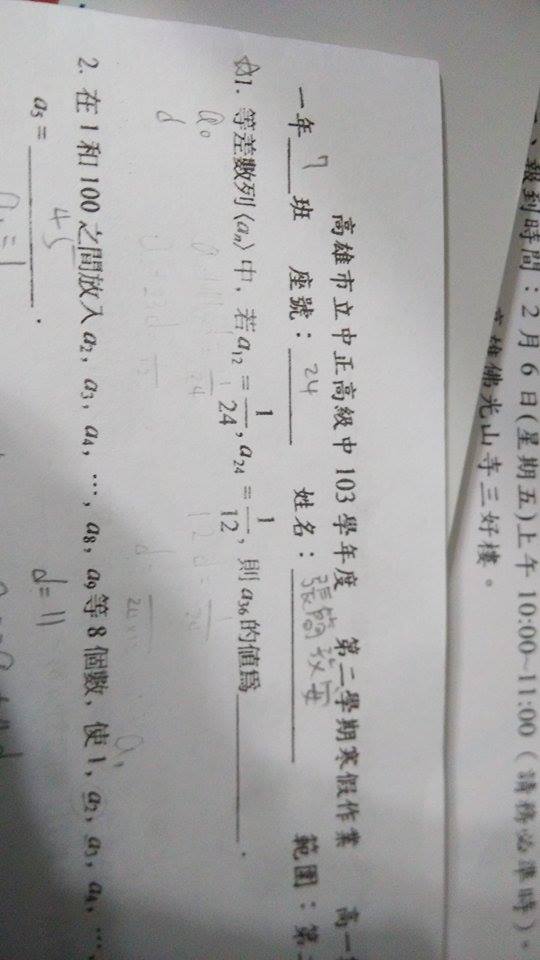 報到時間：2月6日(星期五)上午10:00~11:00（請務必準時）。
高雄佛光山寺三好樓。
高雄市立中正高級中103學年度 第二學期寒假作業 高一
一年 7 班 座號： 24 姓名： 範圍：第
1. 等差數列⟨aₙ⟩中，若a₁₂ = 1/24, a₂₄ = 1/12, 則a₃₆的值為______.
a₀
d
2. 在1和100之間放入a₂, a₃, a₄, …, a₈, a₉等8個數, 使1, a₂, a₃, a₄, …,
a₅ = 45 .
d=11